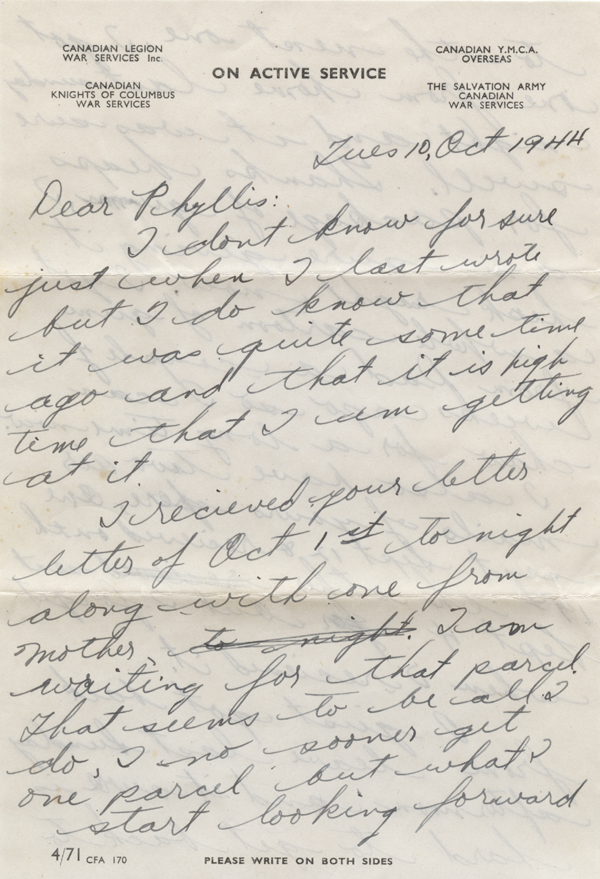 CANADIAN LEGION
WAR SERVICES Inc.
CANADIAN
KNIGHTS OF COLUMBUS
WAR SERVICES
ON ACTIVE SERVICE
CANADIAN Y.M.C.A.
OVERSEAS
THE SALVATION ARMY
CANADIAN
WAR SERVICES
Tues 10, Oct 1944
Dear Phyllis:
I dont know for sure
just when I last wrote
but I do know that
it was quite some time
ago and that it is high
time that I am getting
at it.
I recieved your letter
letter of Oct 1st to night
along with one from
Mother. to night. I am
waiting for that parcel.
That seems to be all I
do, I no sooner get
one parcel but what I
start looking forward
4/71 CFA 170
PLEASE WRITE ON BOTH SIDES